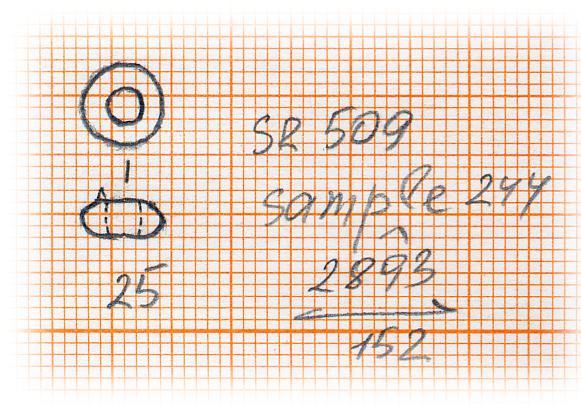 SR 509
sample 244
2893
152
25